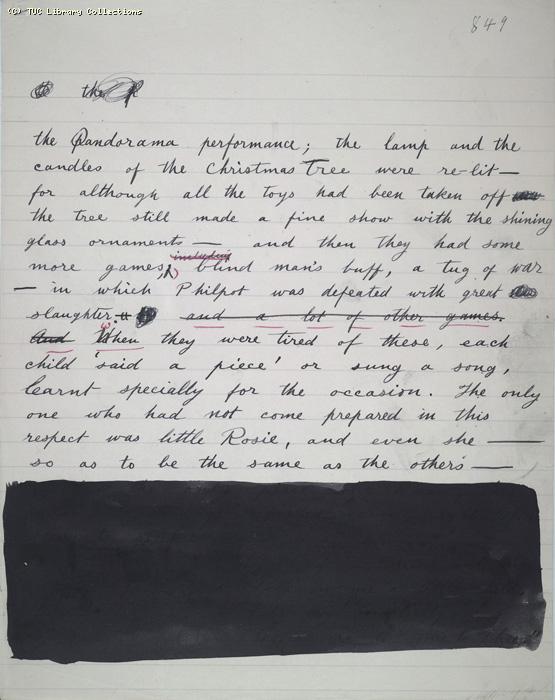 (C) TUC Library Collections
849
the
the Pandorama performance; the lamp and the
candles of the Christmas Tree were re-lit —
for although all the toys had been taken off
the tree still made a fine show with the shining
glass ornaments — and then they had some
including
more games, blind man's buff, a tug of war
— in which Philpot was defeated with great
slaughter. and a lot of other games.
And When they were tired of these, each
child 'said a piece' or sung a song,
learnt specially for the occasion. The only
one who had not come prepared in this
respect was little Rosie, and even she —
so as to be the same as the others —